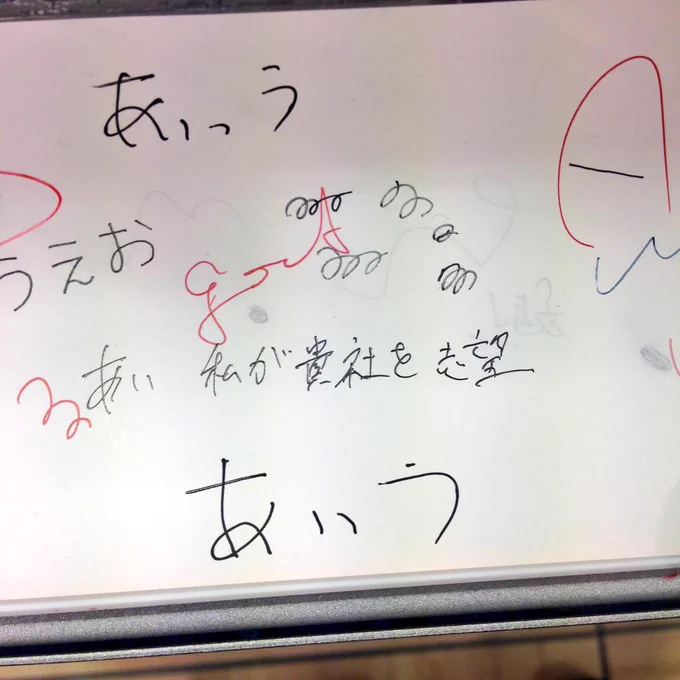 あいう
うえお
あい 私が貴社を志望
あいう